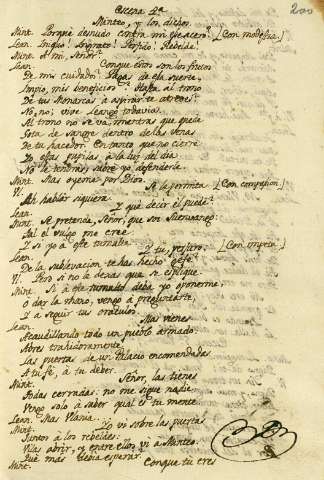 200
Escena 4ª
Minteo, y los dichos.
Mint. Porqué desnudo contra mi ese acero? [Con modestia.]
Lean. Iniquo! Ingrato! Perfido! Rebelde!
Mint. A mi, Señor?
Lean. Conque estos son los frutos
De mis cuidados? Pagas de esa suerte,
Impio, mis beneficios? Hasta al trono
De tus Monarcas à aspirar te atreves?
No, no; vive Leango todavia.
Al trono no se va, mientras que queda
Gota de sangre dentro de las venas
De tu hacedor. En tanto que no cierre
Yo estas pupilas à la luz del dia
No la tendràs: sabré yo defenderle.
Mint. Mas oyeme por Dios.
Vl. Se le permita [Con compasion.]
Ah hablàr siquiera.
Lean. Y què decir èl puede?
Mint. Se pretende, Señor, que soy Suenvango:
Asi el vulgo me cree.
Lean. Y tu, perfido, [Con impetu.]
De la sublevacion te has hecho gefe?
Vl. Pero si no le dexas que se esplique.
Mint. Si à este tumulto deba yo oponerme,
ò dar la mano, vengo à preguntarte,
Y à seguir tus oraculos.
Lean. Mas vienes
Acaudillando todo un pueblo armado.
Abres traidoramente
Las puertas de un Palacio encomendadas
A tu fé, à tu deber.
Mint. Señor, las tienes
Todas cerradas: no me sigue nadie.
Vengo solo à saber qual es tu mente.
Lean. Mas Vlania
Vl. Yo vi sobre las puertas
Juntos à los rebeldes:
Vilas abrir, y entre ellos vi à Minteo.
Què mas debia esperar?
Mint. Conque tu eres